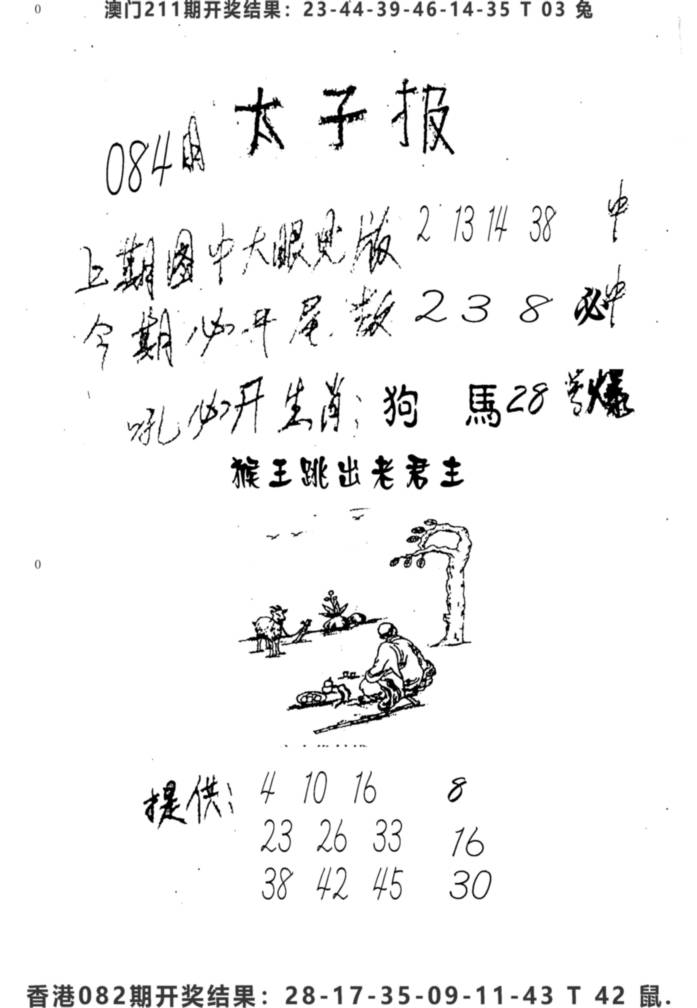 澳门211期开奖结果：23-44-39-46-14-35 T 03 兔
太子报
084期
上期图中大眼见版 2 13 14 38 中
今期必开尾数 2 3 8 必中
吼必开生肖：狗 馬 28号爆
猴王跳出老君主
提供：4 10 16 8
23 26 33 16
38 42 45 30
香港082期开奖结果：28-17-35-09-11-43 T 42 鼠.
0
0